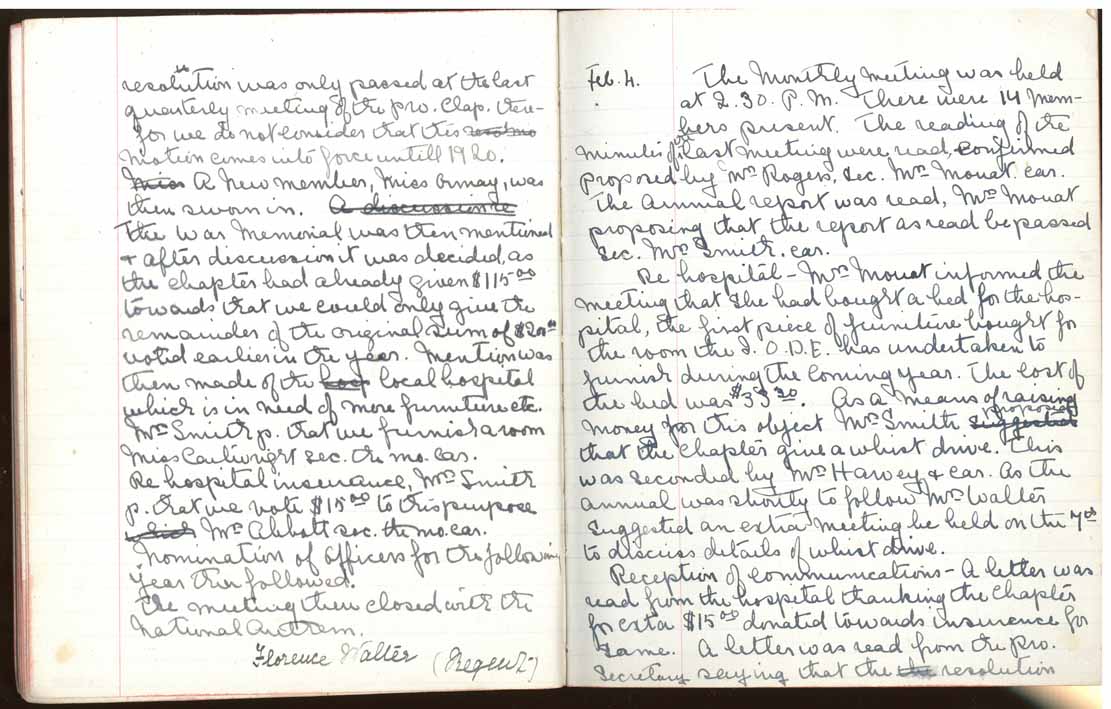 resolution was only passed at the last
quarterly meeting of the pro. Chap. there-
for we do not consider that this resolmo
motion comes into force untill 1920.
Miss A new member, Miss , was
then sworn in. A discussion re
the War Memorial was then mentioned
& after discussion it was decided, as
the chapter had already given $115.00
towards that we could only give the
remainder of the original sum of $200.00
voted earlier in the year. Mention was
then made of the hosp local hospital
which is in need of more furniture etc.
Mrs Smith p. that we furnish a room
Miss Cartwright sec. the mo. car.
Re hospital insurance, Mrs Smith
p. that we vote $15.00 to this purpose
which Mrs Abbott sec. the mo. car.
Nomination of officers for the following
year then followed.
The meeting then closed with the
National Anthem.
Florence Walter (Regent)
Feb. 4. The Monthly meeting was held
at 2.30. P.M. There were 14 mem-
bers present. The reading of the
minutes of the last meeting were read, confirmed
proposed by Mrs Rogers, sec. Mrs Mouat. car.
The annual report was read, Mrs Mouat
proposing that the report as read be passed
sec. Mrs Smith. car.
Re hospital – Mrs Mouat informed the
meeting that she had bought a bed for the hos-
pital, the first piece of furniture bought for
the room the I.O.D.E. has undertaken to
furnish during the coming year. The cost of
the bed was $33.30. As a means of raising
money for this object Mrs Smith suggested proposed
that the Chapter give a whist drive. This
was seconded by Mrs Harvey & car. As the
annual was shortly to follow Mrs Walter
suggested an extra meeting be held on the 7th
to discuss details of whist drive.
Reception of communications – A letter was
read from the hospital thanking the Chapter
for exta $15.00 donated towards insurance for
same. A letter was read from the pro.
Secretary saying that the the resolution